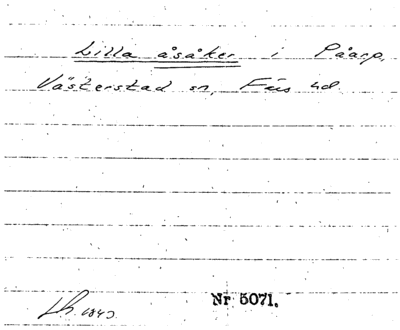 Lilla åsåker i Påarp,
Västerstad sn, Färs hd.
Nr 5071.